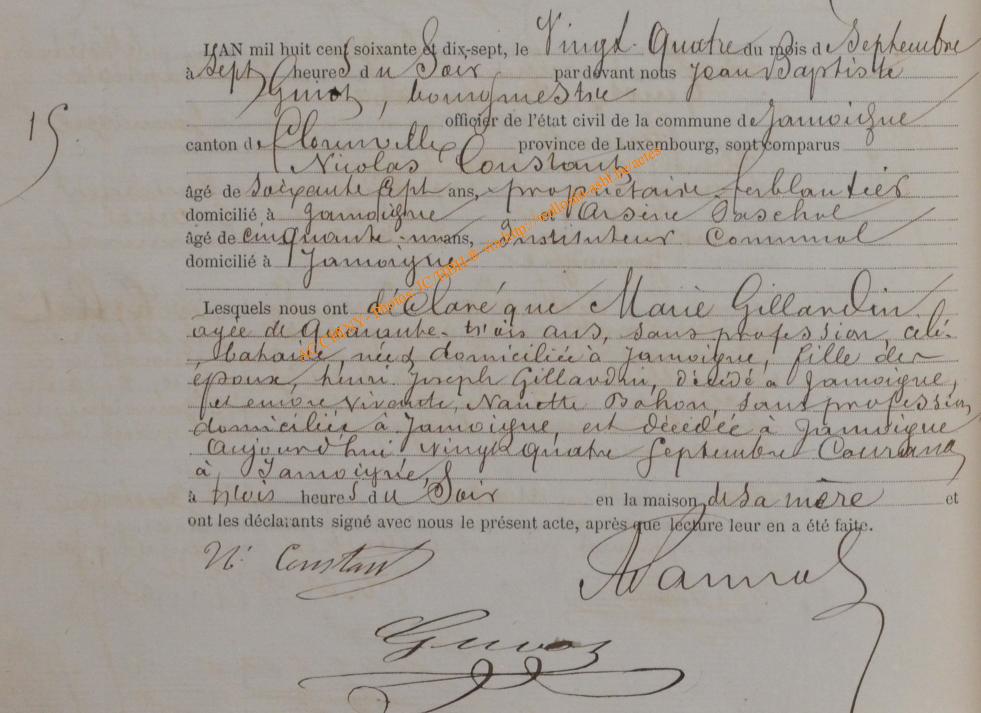 15
L'AN mil huit cent soixante et dix-sept, le Vingt-Quatre du mois de Septembre
à Sept heures du Soir par devant nous Jean Baptiste
Guiot, bourgmestre
officier de l'état civil de la commune de Jamoigne
canton de Florenville province de Luxembourg, sont comparus
Nicolas Constant
âgé de soixante sept ans, propriétaire ferblantier
domicilié à Jamoigne Arsène
âgé de cinquante-un ans, Instituteur Communal
domicilié à Jamoigne
Lesquels nous ont déclaré que Marie Gillardin
agée de Quarante-trois ans, sans profession, céli-
bataire, née & domiciliée à Jamoigne, fille des
époux, henri Joseph Gillardin, décédé à Jamoigne,
et encore vivante, Nanette Bahon, sans profession,
domiciliée à Jamoigne, est décédée à Jamoigne
Aujourd'hui vingt quatre Septembre Courant,
à Jamoigne,
à trois heures du Soir en la maison de sa mère et
ont les déclarants signé avec nous le présent acte, après que lecture leur en a été faite.
N. Constant
Guiot